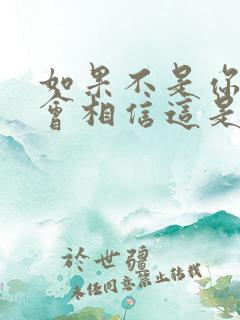 如果不是你
會相信這是
於世疆
未经同意禁止转载